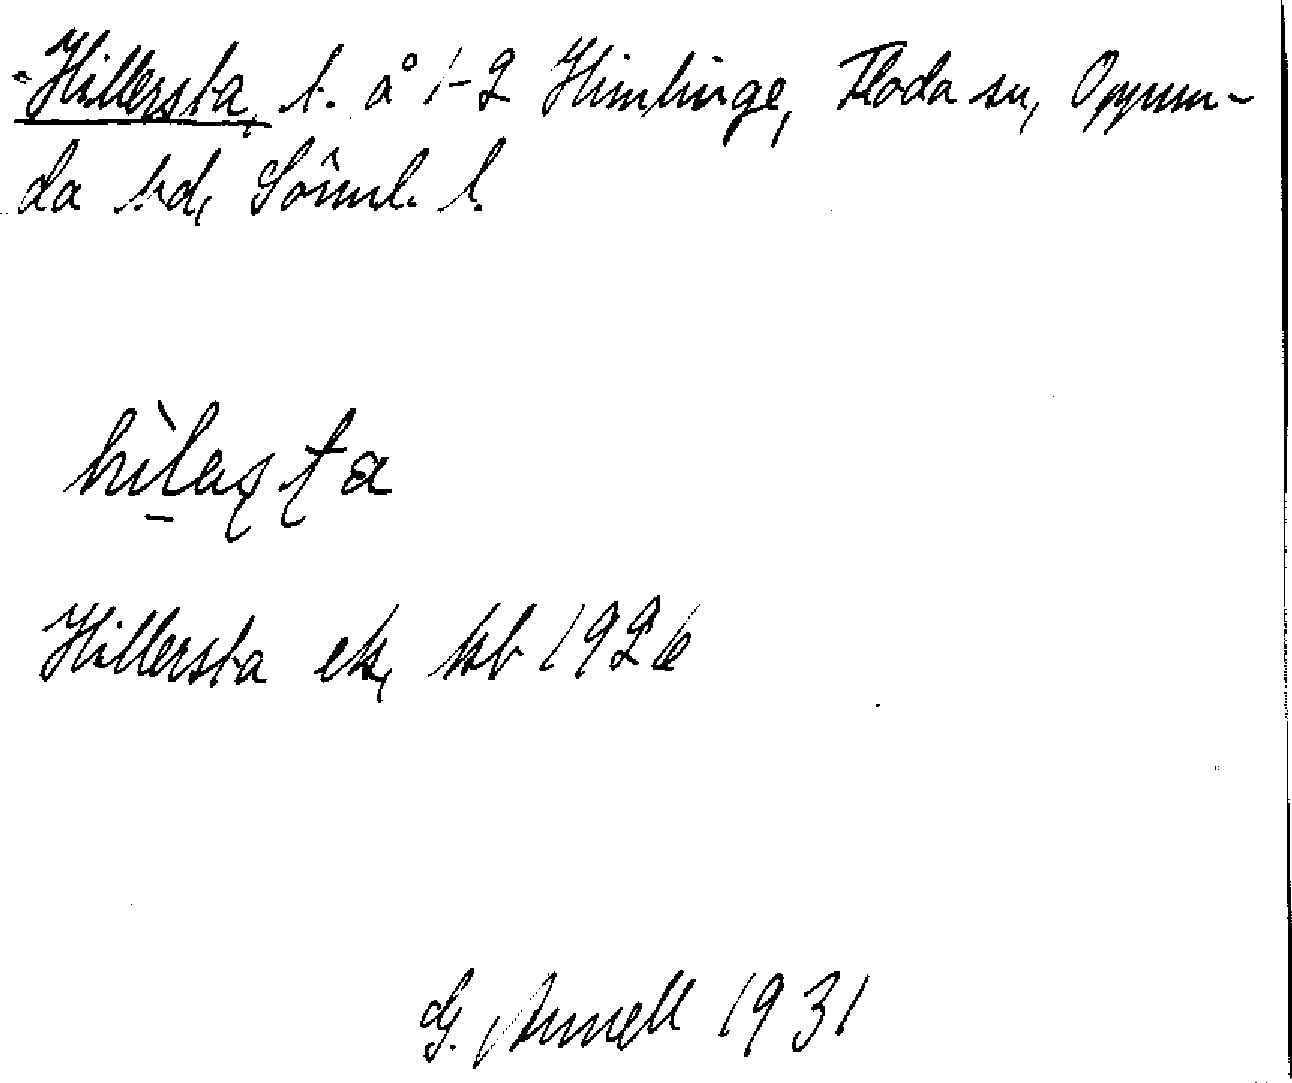 Hillersta, t. å 1-2 Himlinge, Floda sn, Oppun-
da hd, Sörml. l.
hìlaṣṭa
Hillersta ek, kb 1926
G. Annell 1931